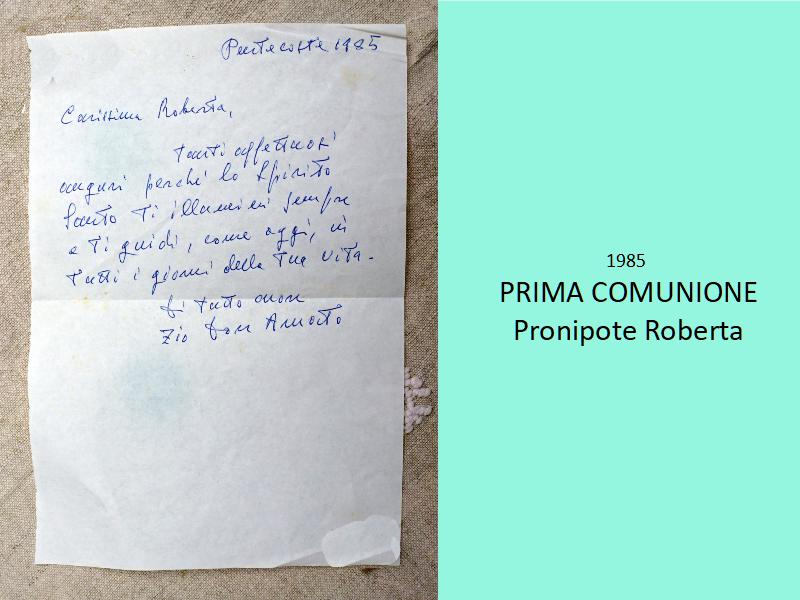 Pentecoste 1985
Carissima Roberta,
tanti affettuosi
auguri perché lo Spirito
Santo Ti illumini sempre
e Ti guidi, come oggi, in
tutti i giorni della Tua vita.
di tutto cuore
zio don Arnosto
1985
PRIMA COMUNIONE
Pronipote Roberta